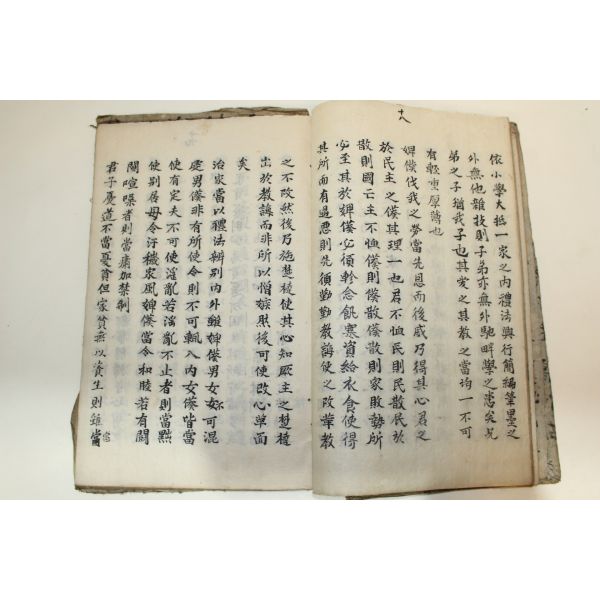 十八
依小學大抵一家之内禮法興行簡編筆墨之
外無他雜技則子弟亦無外馳畔學之患矣兄
弟之子猶我子也其愛之其教之當均一不可
有輕重厚薄也
婢僕代我之勞當先恩而後威乃得其心君之
於民主之僕其理一也君不恤民則民散民於
散則國亡主不恤僕則僕散僕散則家敗勢所
必至其於婢僕必須軫念飢寒資給衣食使得
其所而有過惡則先須勤勤教誨使之改革教
之不改然後乃施楚撻使其心知厥主之楚撻
出於教誨而非所以憎嫉然後可使改心革面
矣
治家當以禮法辨別内外雖婢僕男女不可混
處男僕非有所使令則不可輒入内女僕皆當
使有定夫不可使淫亂若淫亂不止者則當黜
使別居母令汙穢家風婢僕當令和睦若有鬪
鬨喧噪者則當痛加禁制
君子憂道不當憂貧但家貧無以資生則雖當
當